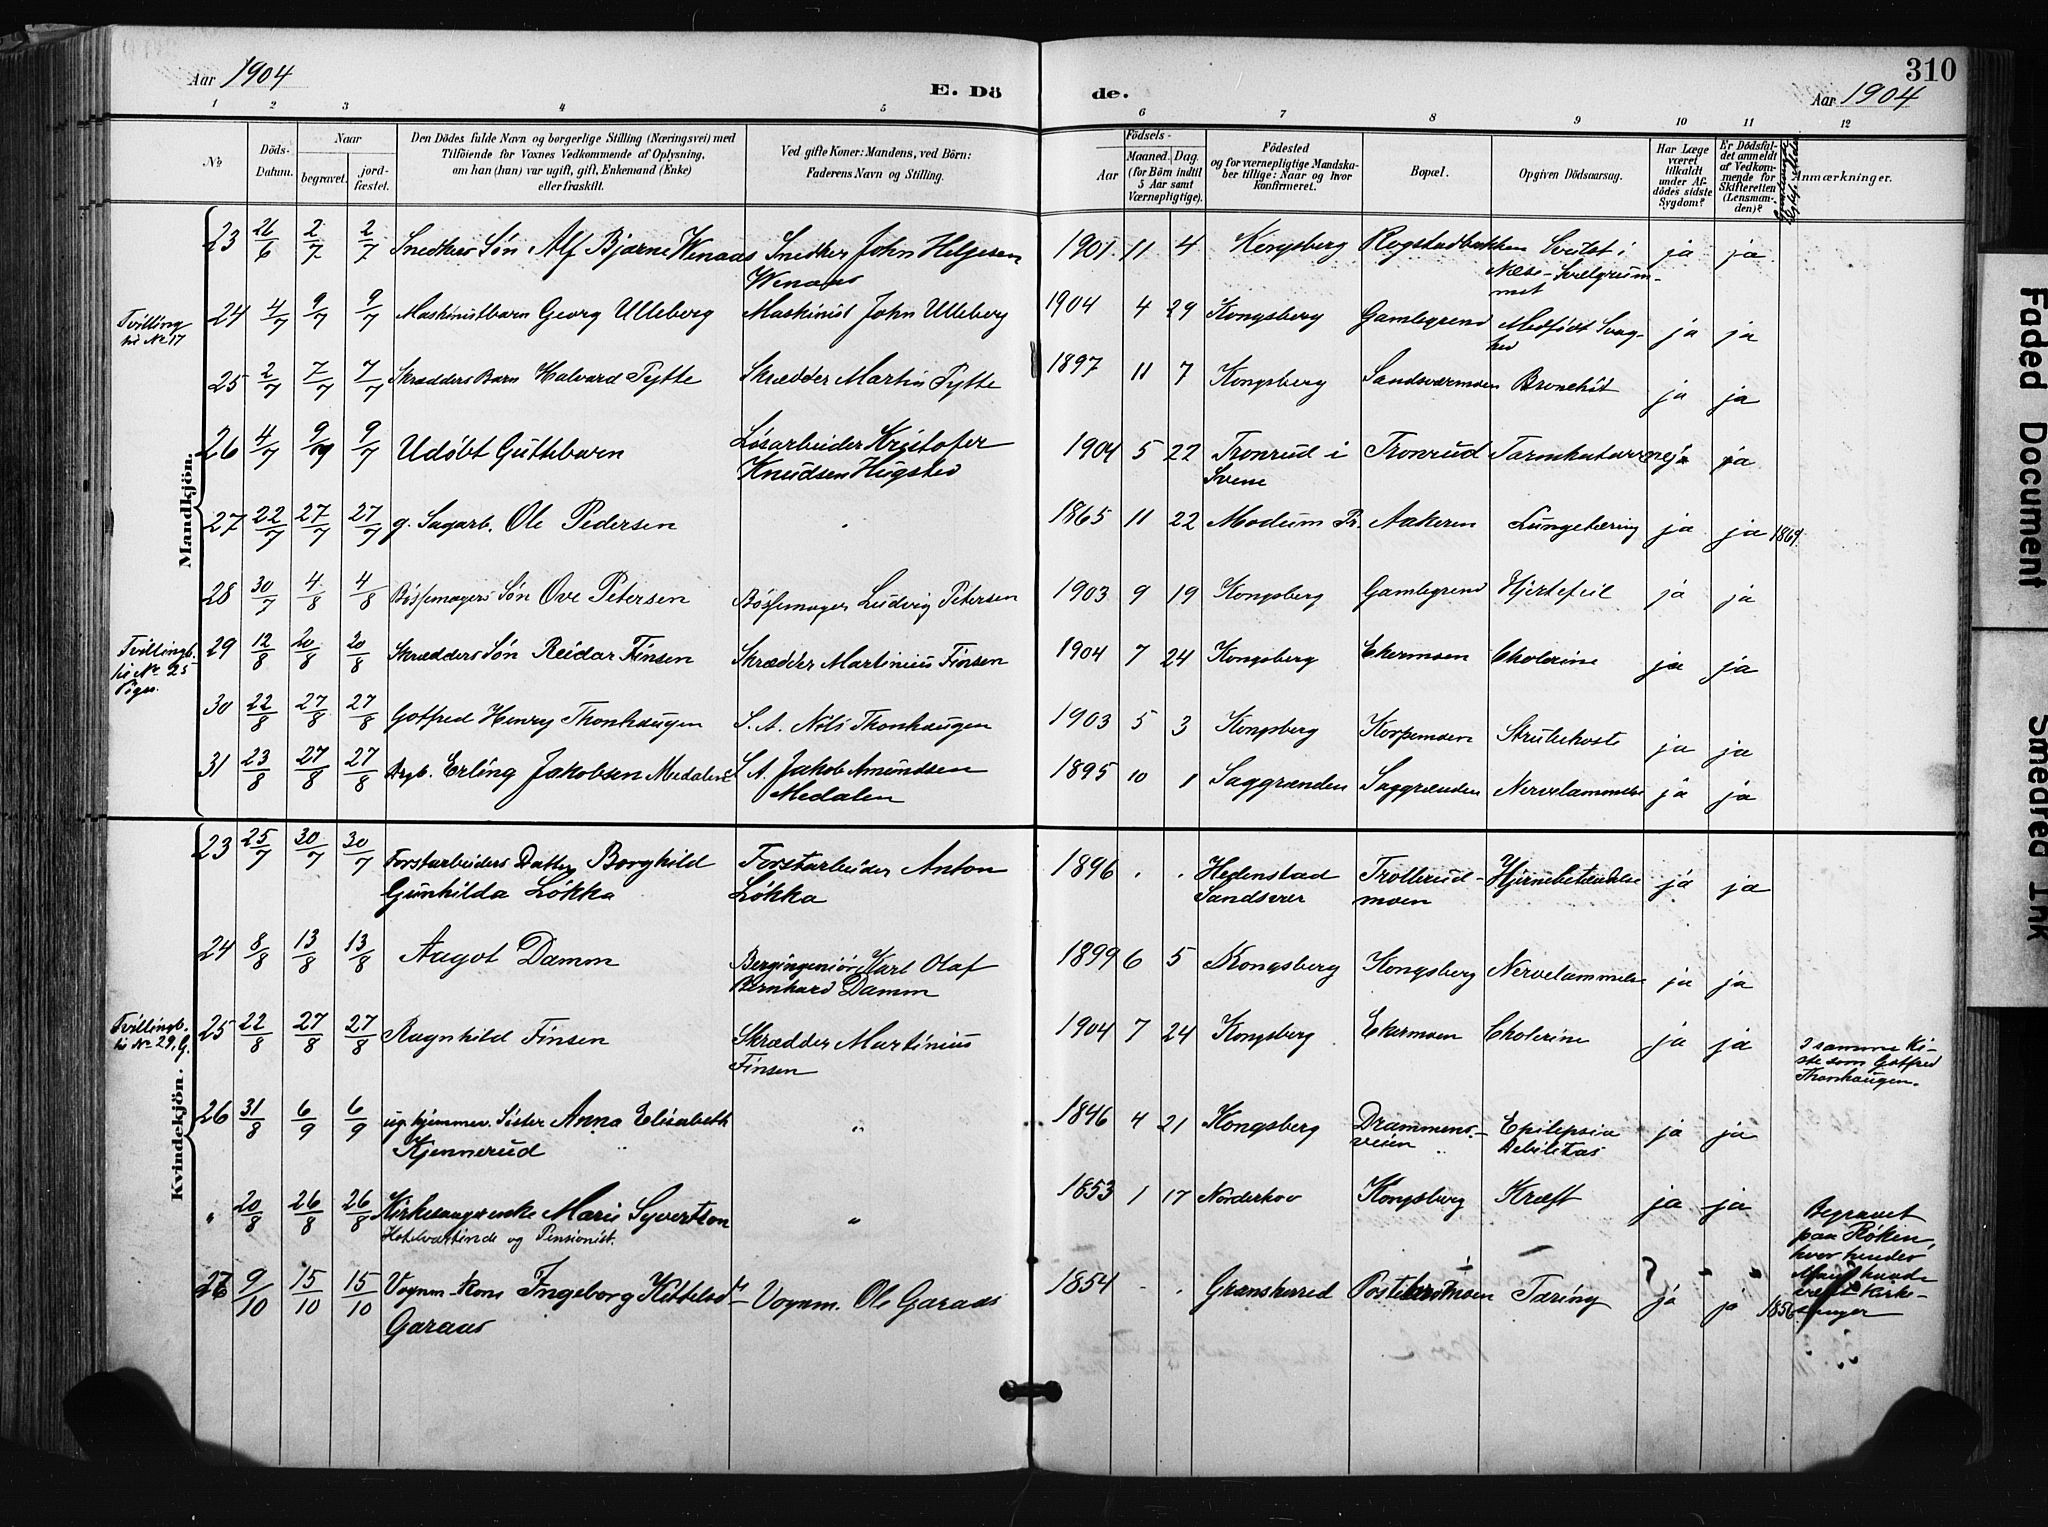 Aar 1904
E. Döde.
Aar 1904
310
1 2 3 4 5 6 7 8 9 10 11 12
No
Döds-Datum.
Naar
begravet.
jordfæstet.
Den Dödes fulde Navn og borgerlige Stilling (Næringsvei) med Tilföiende for Voxnes Vedkommende af Oplysning, om han (hun) var ugift, gift, Enkemand (Enke) eller fraskilt.
Ved gifte Koner: Mandens, ved Börn: Faderens Navn og Stilling.
Födsels-
Aar
Maaned. Dag. (for Börn indtil 5 Aar samt Værnepligtige).
Födested og for værnepligtige Mandskaber tillige: Naar og hvor konfirmeret.
Bopæl.
Opgiven Dödsaarsag.
Har Læge været tilkaldt under Afdödes sidste Sygdom?
Er Dödsfaldet anmeldt af Vedkommende for Skifteretten (Lensmanden)?
Anmærkninger.
Mandkjön.
23 26/6 2/7 2/7 Snedkers Søn Alf Bjarne Wenaas Snedker John Helgesen Wenaas 1901 11 4 Kongsberg Rogstadbakken ja ja
Tvilling til No 17 24 4/7 9/7 9/7 Maskinistbarn Georg Ulleberg Maskinist John Ulleberg 1904 4 29 Kongsberg Gamlegrend Medfødt Svaghed ja ja
25 2/7 7/7 7/7 Skrædders Barn Halvard Tytte Skrædder Martin Tytte 1897 11 7 Kongsberg Sandsværmoen Bronchit ja ja
26 4/7 9/7 9/7 Udøbt Guttebarn Løsarbeider Kristofer Knudsen Hugsted 1904 5 22 Tronrud i Svene Tronrud Tarmkatarr nej ja
27 22/7 27/7 27/7 g. Sagarb. Ole Pedersen " 1865 11 22 Modum Pr. Aakeren Lungetæring ja ja 1869
28 30/7 4/8 4/8 Bøssemagers Søn Ove Petersen Bøssemager Ludvig Petersen 1903 9 19 Kongsberg Gamlegrend Hjertefeil ja ja
Tvillingb. til No 25 Piger. 29 12/8 20/8 20/8 Skrædders Søn Reidar Finsen Skrædder Martinius Finsen 1904 7 24 Kongsberg Ekermoen Cholerine ja ja
30 22/8 27/8 27/8 Gotfred Henry Thonhaugen S. A. Nils Thonhaugen 1903 5 3 Kongsberg Korpemoen Strubehoste ja ja
31 23/8 27/8 27/8 Erling Jakobsen Medalen S. A. Jakob Amundsen Medalen 1895 10 1 Saggrænden Saggrænden Nervelammelse ja ja
Kvindekjön.
23 25/7 30/7 30/7 Forstarbeiders Datter Borghild Gunhilda Løkka Forstarbeider Anton Løkka 1896 " " Hedenstad Sandsver Trollerudmoen Hjernebetændelse ja ja
24 8/8 13/8 13/8 Aagot Damm Bergingeniør Karl Olaf Bernhard Damm 1899 6 5 Kongsberg Kongsberg Nervelammelse ja ja
Tvillingb. til No 29, G. 25 22/8 27/8 27/8 Ragnhild Finsen Skrædder Martinius Finsen 1904 7 24 Kongsberg Ekermoen Cholerine ja ja I samme Kiste som Gotfred Thonhaugen.
26 31/8 6/9 6/9 ug. hjemmev. Søster Anna Elisabeth Kjennerud " 1846 4 21 Kongsberg Drammensveien Epilepsia Debilitas ja ja
" 20/8 26/8 26/8 Kirkesanger enke Marie Syvertson Hotelværtinde og Pensionist. " 1853 1 17 Norderhov Kongsberg Kræft ja ja Begravet paa Røken, hvor hendes Mand havde været Kirkesanger
27 9/10 15/10 15/10 Vognm. Kone Ingeborg Kittelsdt Garaas Vognm. Ole Garaas 1854 " " Gransherred Tæring ja ja 1856
Faded Document
Smeared Ink